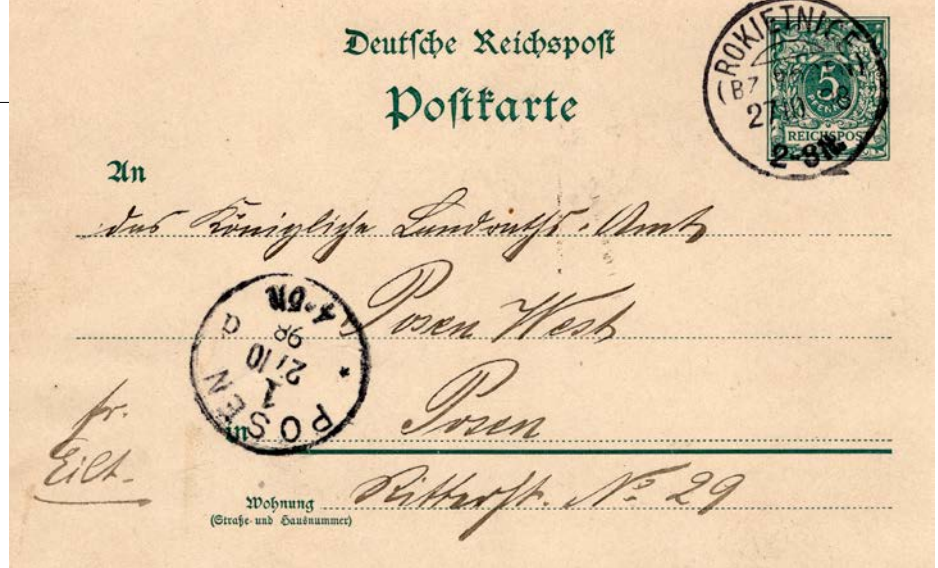 Deutsche Reichspost
Postkarte
ROKIETNICE
(BZ. POSEN)
27 10 98
2-3N.
5
PFENNIG
REICHSPOST
An
das Königliche Landraths-Amt
Posen West
POSEN
1
27 10
98
4-5N.
a
in Posen
fr.
Eilt.
Wohnung
(Straße und Hausnummer)
Ritterst. No 29